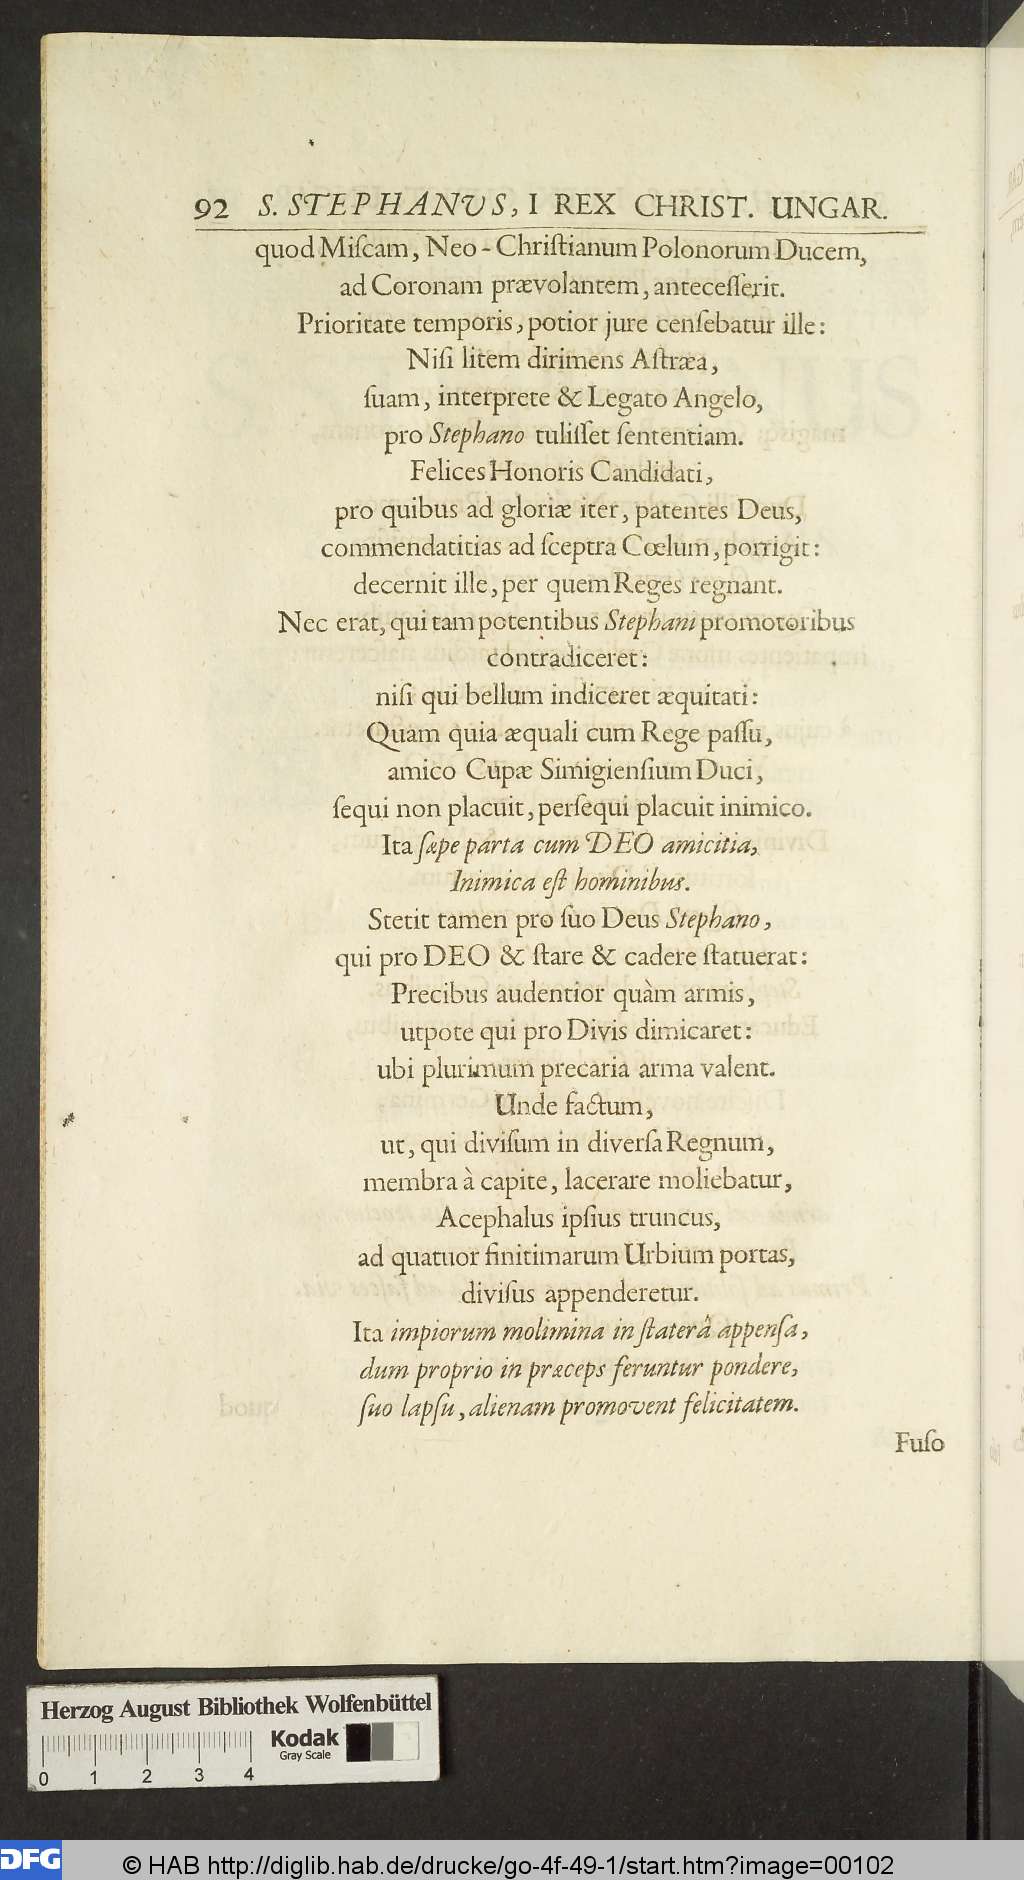 92 S. STEPHANUS, I REX CHRIST. UNGAR.
quod Miſcam, Neo-Chriſtianum Polonorum Ducem,
ad Coronam prævolantem, anteceſſerit.
Prioritate temporis, potior jure cenſebatur ille:
Niſi litem dirimens Aſtræa,
ſuam, interprete & Legato Angelo,
pro Stephano tuliſſet ſententiam.
Felices Honoris Candidati,
pro quibus ad gloriæ iter, patentes Deus,
commendatitias ad ſceptra Cœlum, porrigit:
decernit ille, per quem Reges regnant.
Nec erat, qui tam potentibus Stephani promotoribus
contradiceret:
niſi qui bellum indiceret æquitati:
Quam quia æquali cum Rege paſſu,
amico Cupæ Simigienſium Duci,
ſequi non placuit, perſequi placuit inimico.
Ita ſæpe parta cum DEO amicitia,
Inimica eſt hominibus.
Stetit tamen pro ſuo Deus Stephano,
qui pro DEO & ſtare & cadere ſtatuerat:
Precibus audentior quàm armis,
utpote qui pro Divis dimicaret:
ubi plurimum precaria arma valent.
Unde factum,
ut, qui diviſum in diverſa Regnum,
membra à capite, lacerare moliebatur,
Acephalus ipſius truncus,
ad quatuor finitimarum Urbium portas,
diviſus appenderetur.
Ita impiorum molimina in ſtaterâ appenſa,
dum proprio in præceps feruntur pondere,
ſuo lapſu, alienam promovent felicitatem.
Fuſo
Herzog August Bibliothek Wolfenbüttel
Kodak
Gray Scale
0 1 2 3 4
DFG
© HAB http://diglib.hab.de/drucke/go-4f-49-1/start.htm?image=00102